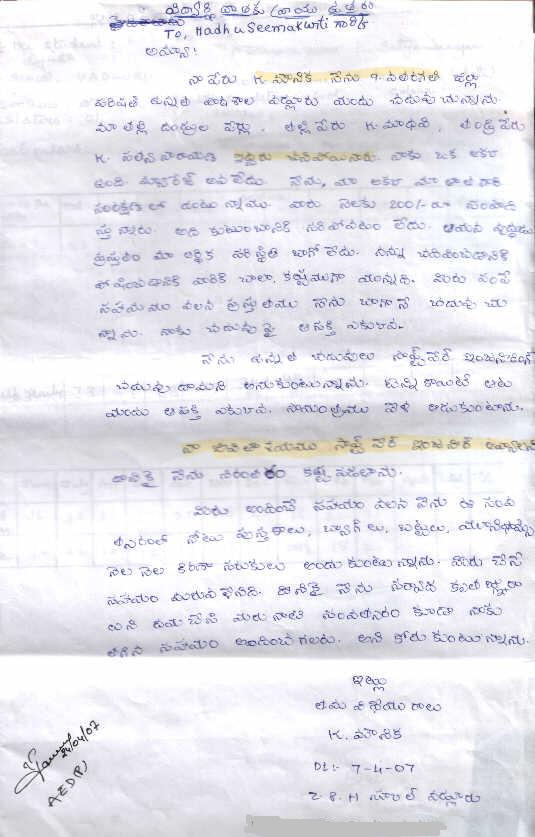 విద్యార్థి దాతకు వ్రాయు ఉత్తరం
To, Madhu Seemakurti గారికి
అయ్యా!
నా పేరు K. మౌనిక నేను 9వ తరగతి జిల్లా
పరిషత్ ఉన్నత పాఠశాల నందు చదువుచున్నాను.
మా తల్లి దండ్రుల పేర్లు, తల్లి పేరు K. మాధవి, తండ్రి పేరు
K. సత్యనారాయణ ఇద్దరు చనిపోయినారు. నాకు ఒక అక్క
ఉంది. మ్యారేజ్ అవలేదు. నేను, మా అక్క మా తాత గారి
సంరక్షణలో ఉంటున్నాము. వారు నెలకు 200/- రూ సంపాది
స్తున్నారు. అది కుటుంబానికి సరిపోవటం లేదు. ఆయన వృద్ధుడు
ప్రస్తుతం మా ఆర్థిక పరిస్థితి బాగోలేదు. నన్ను చదివించడానికి
పోషించడానికి వారికి చాలా కష్టముగా యున్నది. మీరు పంపే
సహాయము వలన ప్రస్తుతము నేను బాగానే చదువుచు
న్నాను. నాకు చదువుపై ఆసక్తి ఎక్కువ.
నేను ఉన్నత చదువులు సాఫ్ట్ వేర్ ఇంజనీరింగ్
చదువుదామని అనుకుంటున్నాను. టెన్నికాయిట్ ఆట
యందు ఆసక్తి ఎక్కువ. ఆడుకుంటాను.
నా జీవితాశయము సాఫ్ట్ వేర్ ఇంజనీర్ అవ్వాలని
దానికై నేను నిరంతరం కష్టపడతాను.
మీరు అందించే సహాయం వలన నేను ఈ సంవ
త్సరంలో నోటు పుస్తకాలు, బ్యాగ్ లు, బట్టలు, యూనిఫామ్స్
నెల నెల కిరాణా సరుకులు అందుకుంటున్నాను. మీరు చేసే
సహాయం మరువలేనిది. దానికై నేను సర్వదా కృతజ్ఞురా
లుని దయచేసి మరుసటి సంవత్సరం కూడా నాకు
తగిన సహాయం అందించగలరు. అని కోరుకుంటున్నాను.
ఇట్లు
తమ విధేయురాలు
K. మౌనిక
Dt:- 7-4-07
Z.P.H స్కూల్
24/04/07
AED(P)